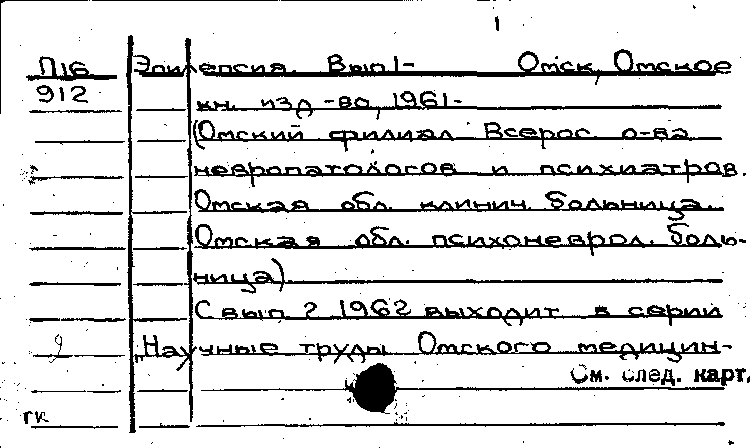 1
П16 Эпилепсия. Вып. 1- Омск, Омское
912 кн. изд-во, 1961-
(Омский филиал Всерос. о-ва
невропатологов и психиатров.
Омская обл. клинич. больница.
Омская обл. психоневрол. боль-
ница)
С вып. 2 1962 выходит в серии
2 „Научные труды Омского медицин-
См. след. карт.
гк